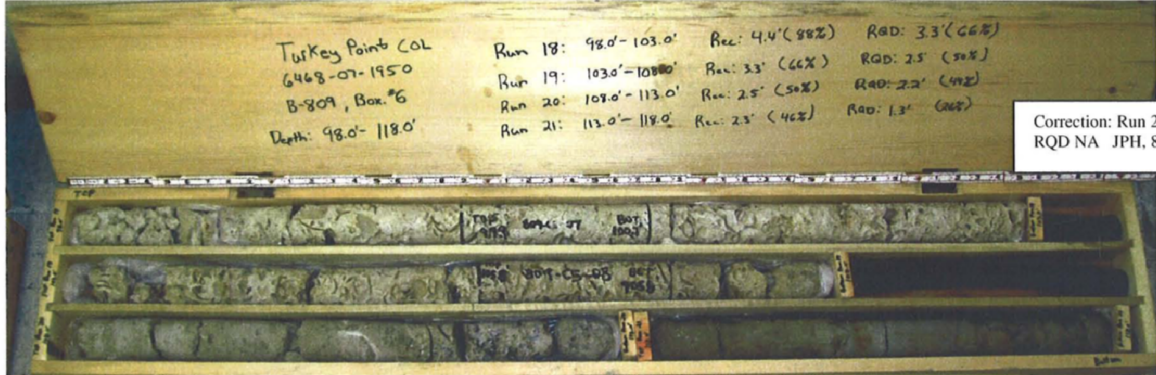 Turkey Point COL
6468-07-1950
B-809, Box #6
Depth: 98.0'- 118.0'
Run 18: 98.0'- 103.0' Rec: 4.4' (88%) RQD: 3.3' (66%)
Run 19: 103.0'- 108.0' Rec: 3.3' (66%) RQD: 2.5' (50%)
Run 20: 108.0'- 113.0' Rec: 2.5' (50%) RQD: 2.2' (44%)
Run 21: 113.0'- 118.0' Rec: 2.3' (46%) RQD: 1.3' (26%)
Correction: Run 2
RQD NA JPH, 8
TOP
TOP BOT
Bottom